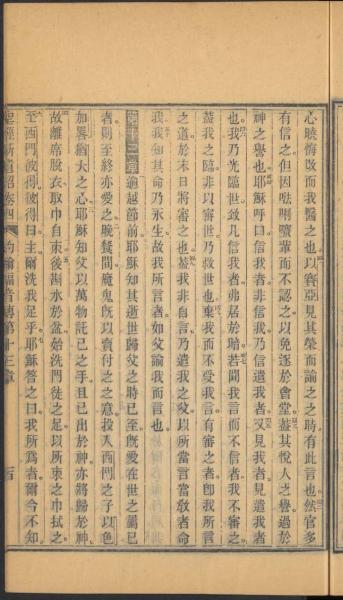 心曉悔改而我醫之也以賽亞見其榮而諭之之時有此言也然官多
有信之但因𠵽唎㘔輩而不認之以免逐於會堂蓋其悅人之譽過於
神之譽也耶穌呼曰信我者非信我乃信遣我者又見我者見遣我者
也我乃光臨世致凡信我者弗居於暗若聞我言而不信者我不審之
蓋我之臨非以審世乃救世也棄我而不受我言有審之者即我所言
之道於末日將審之也蓋我非自言乃遣我之父以所當言當敎者命
我我知其命乃永生故我所言者如父諭我而言也
第十三章逾越節前耶穌知其逝世歸父之時已至旣愛在世之屬已
者則至終亦愛之晚餐間魔鬼旣以賣付之之意投入西門之子以色
加畧猶大之心耶穌知父以萬物託已之手且已出於神亦將歸於神
故離席脫衣取巾自束後斟水於盆始洗門徒之足以所束之巾拭之
至西門彼得彼得曰主爾洗我足乎耶穌答之曰我所爲者爾今不知
聖經新遺詔卷四 約翰福音傳第十三章